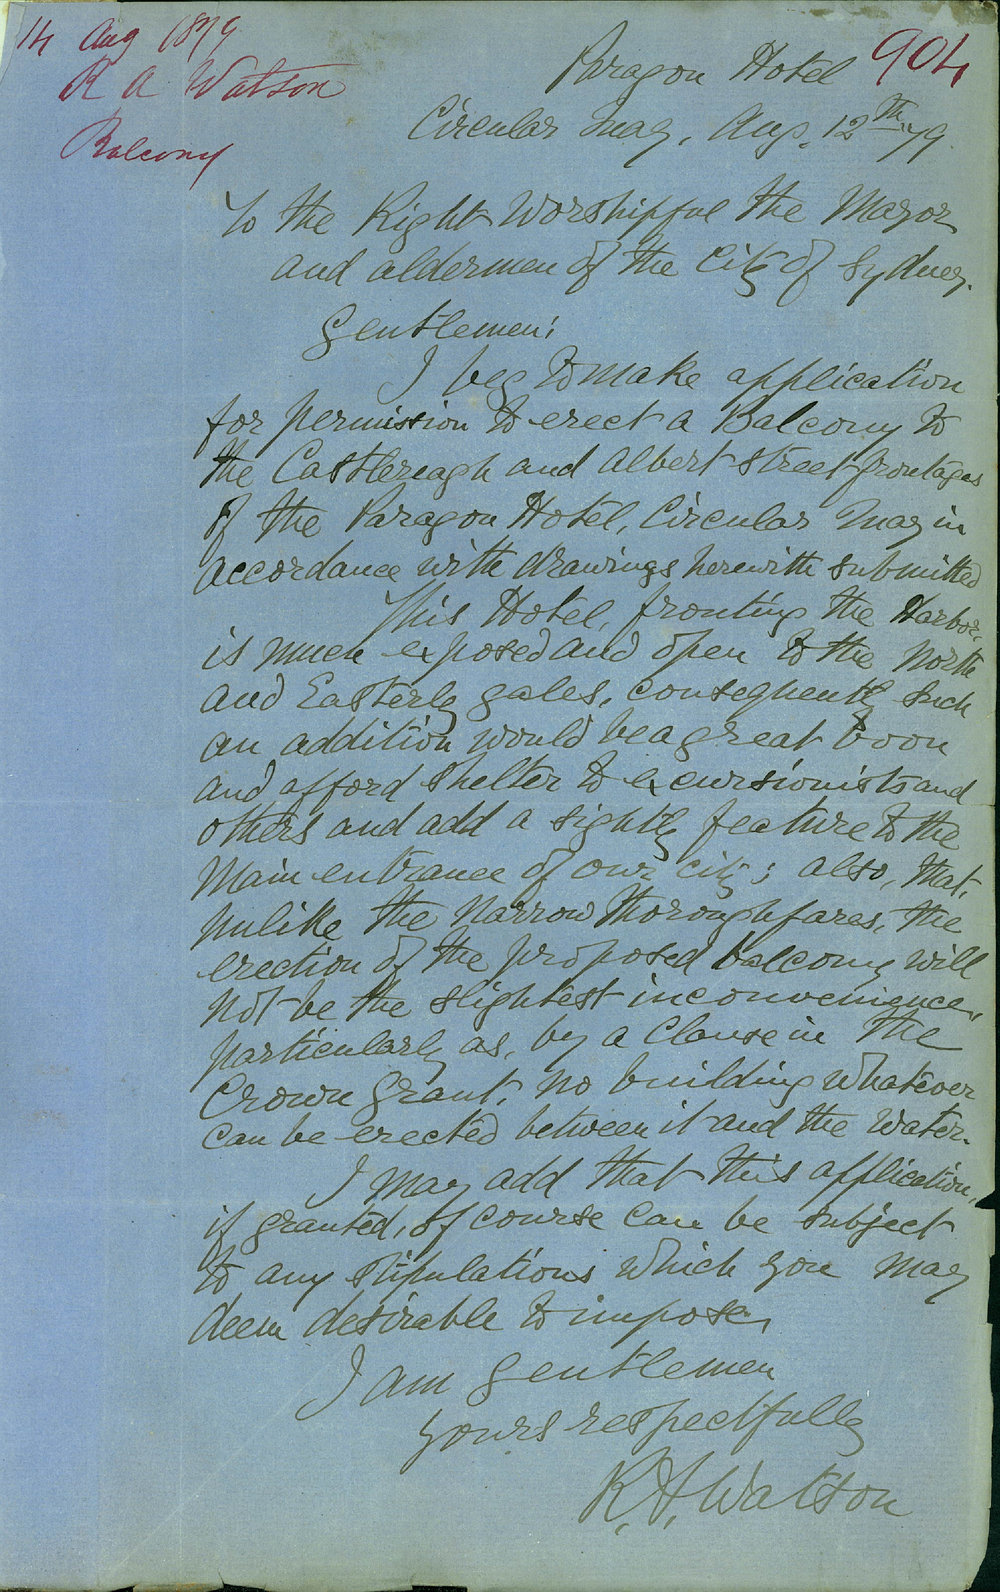 14 Aug 1879
R A Watson
Balcony
904
Paragon Hotel
Circular Quay, Aug. 12th 79.
To the Right Worshipful the Mayor
and aldermen of the City of Sydney.
Gentlemen;
I beg to make application
for permission to erect a Balcony to
the Castlereagh and Albert street frontages
of the Paragon Hotel, Circular Quay in
accordance with drawings herewith submitted
This Hotel, fronting the Harbor,
is much exposed and open to the North
and Easterly gales, consequently such
an addition would be a great boon
and afford shelter to excursionists and
others and add a sightly feature to the
Main entrance of our city; also, that,
unlike the narrow thoroughfares, the
erection of the proposed balcony will
not be the slightest inconvenience,
particularly as, by a Clause in the
Crown Grant, no building whatever
can be erected between it and the water.
I may add that this application,
if granted, of course can be subject
to any stipulations which you may
deem desirable to impose,
I am Gentlemen
Yours respectfully
R. A. Watson